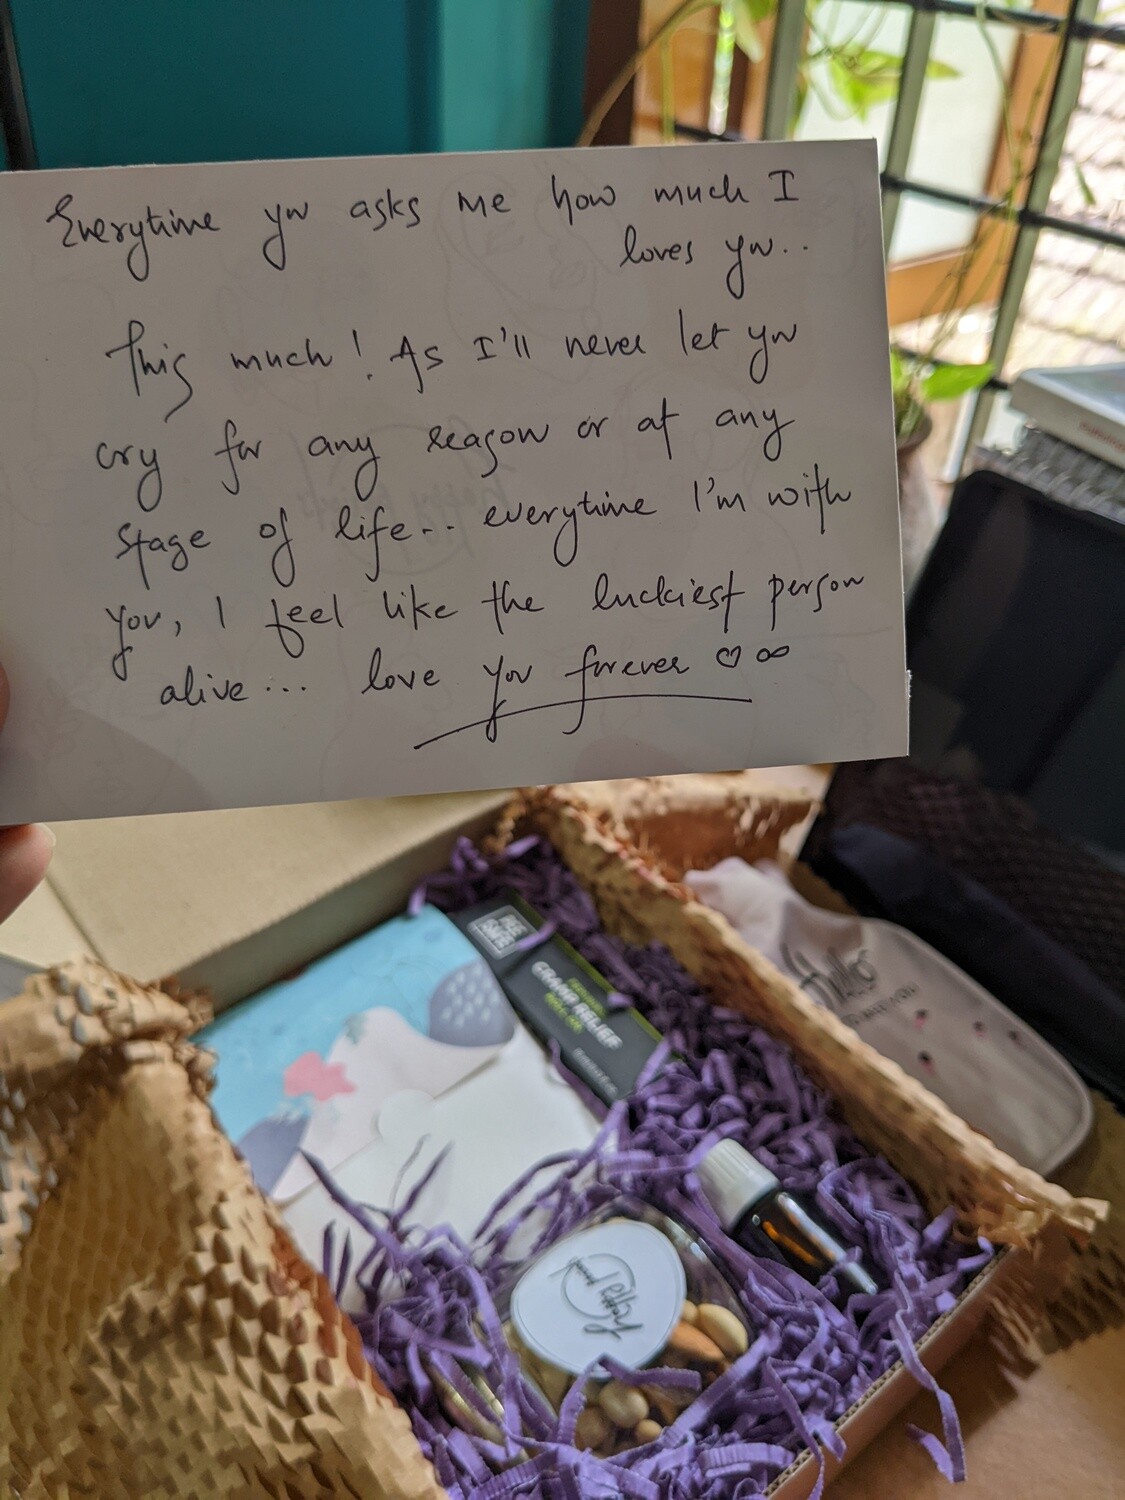 Everytime you asks me how much I
loves you..
This much! As I'll never let you
cry for any reason or at any
stage of life.. everytime I'm with
you, I feel like the luckiest person
alive... love you forever ♡ ∞
CRAMP RELIEF
ROLL ON
happy period